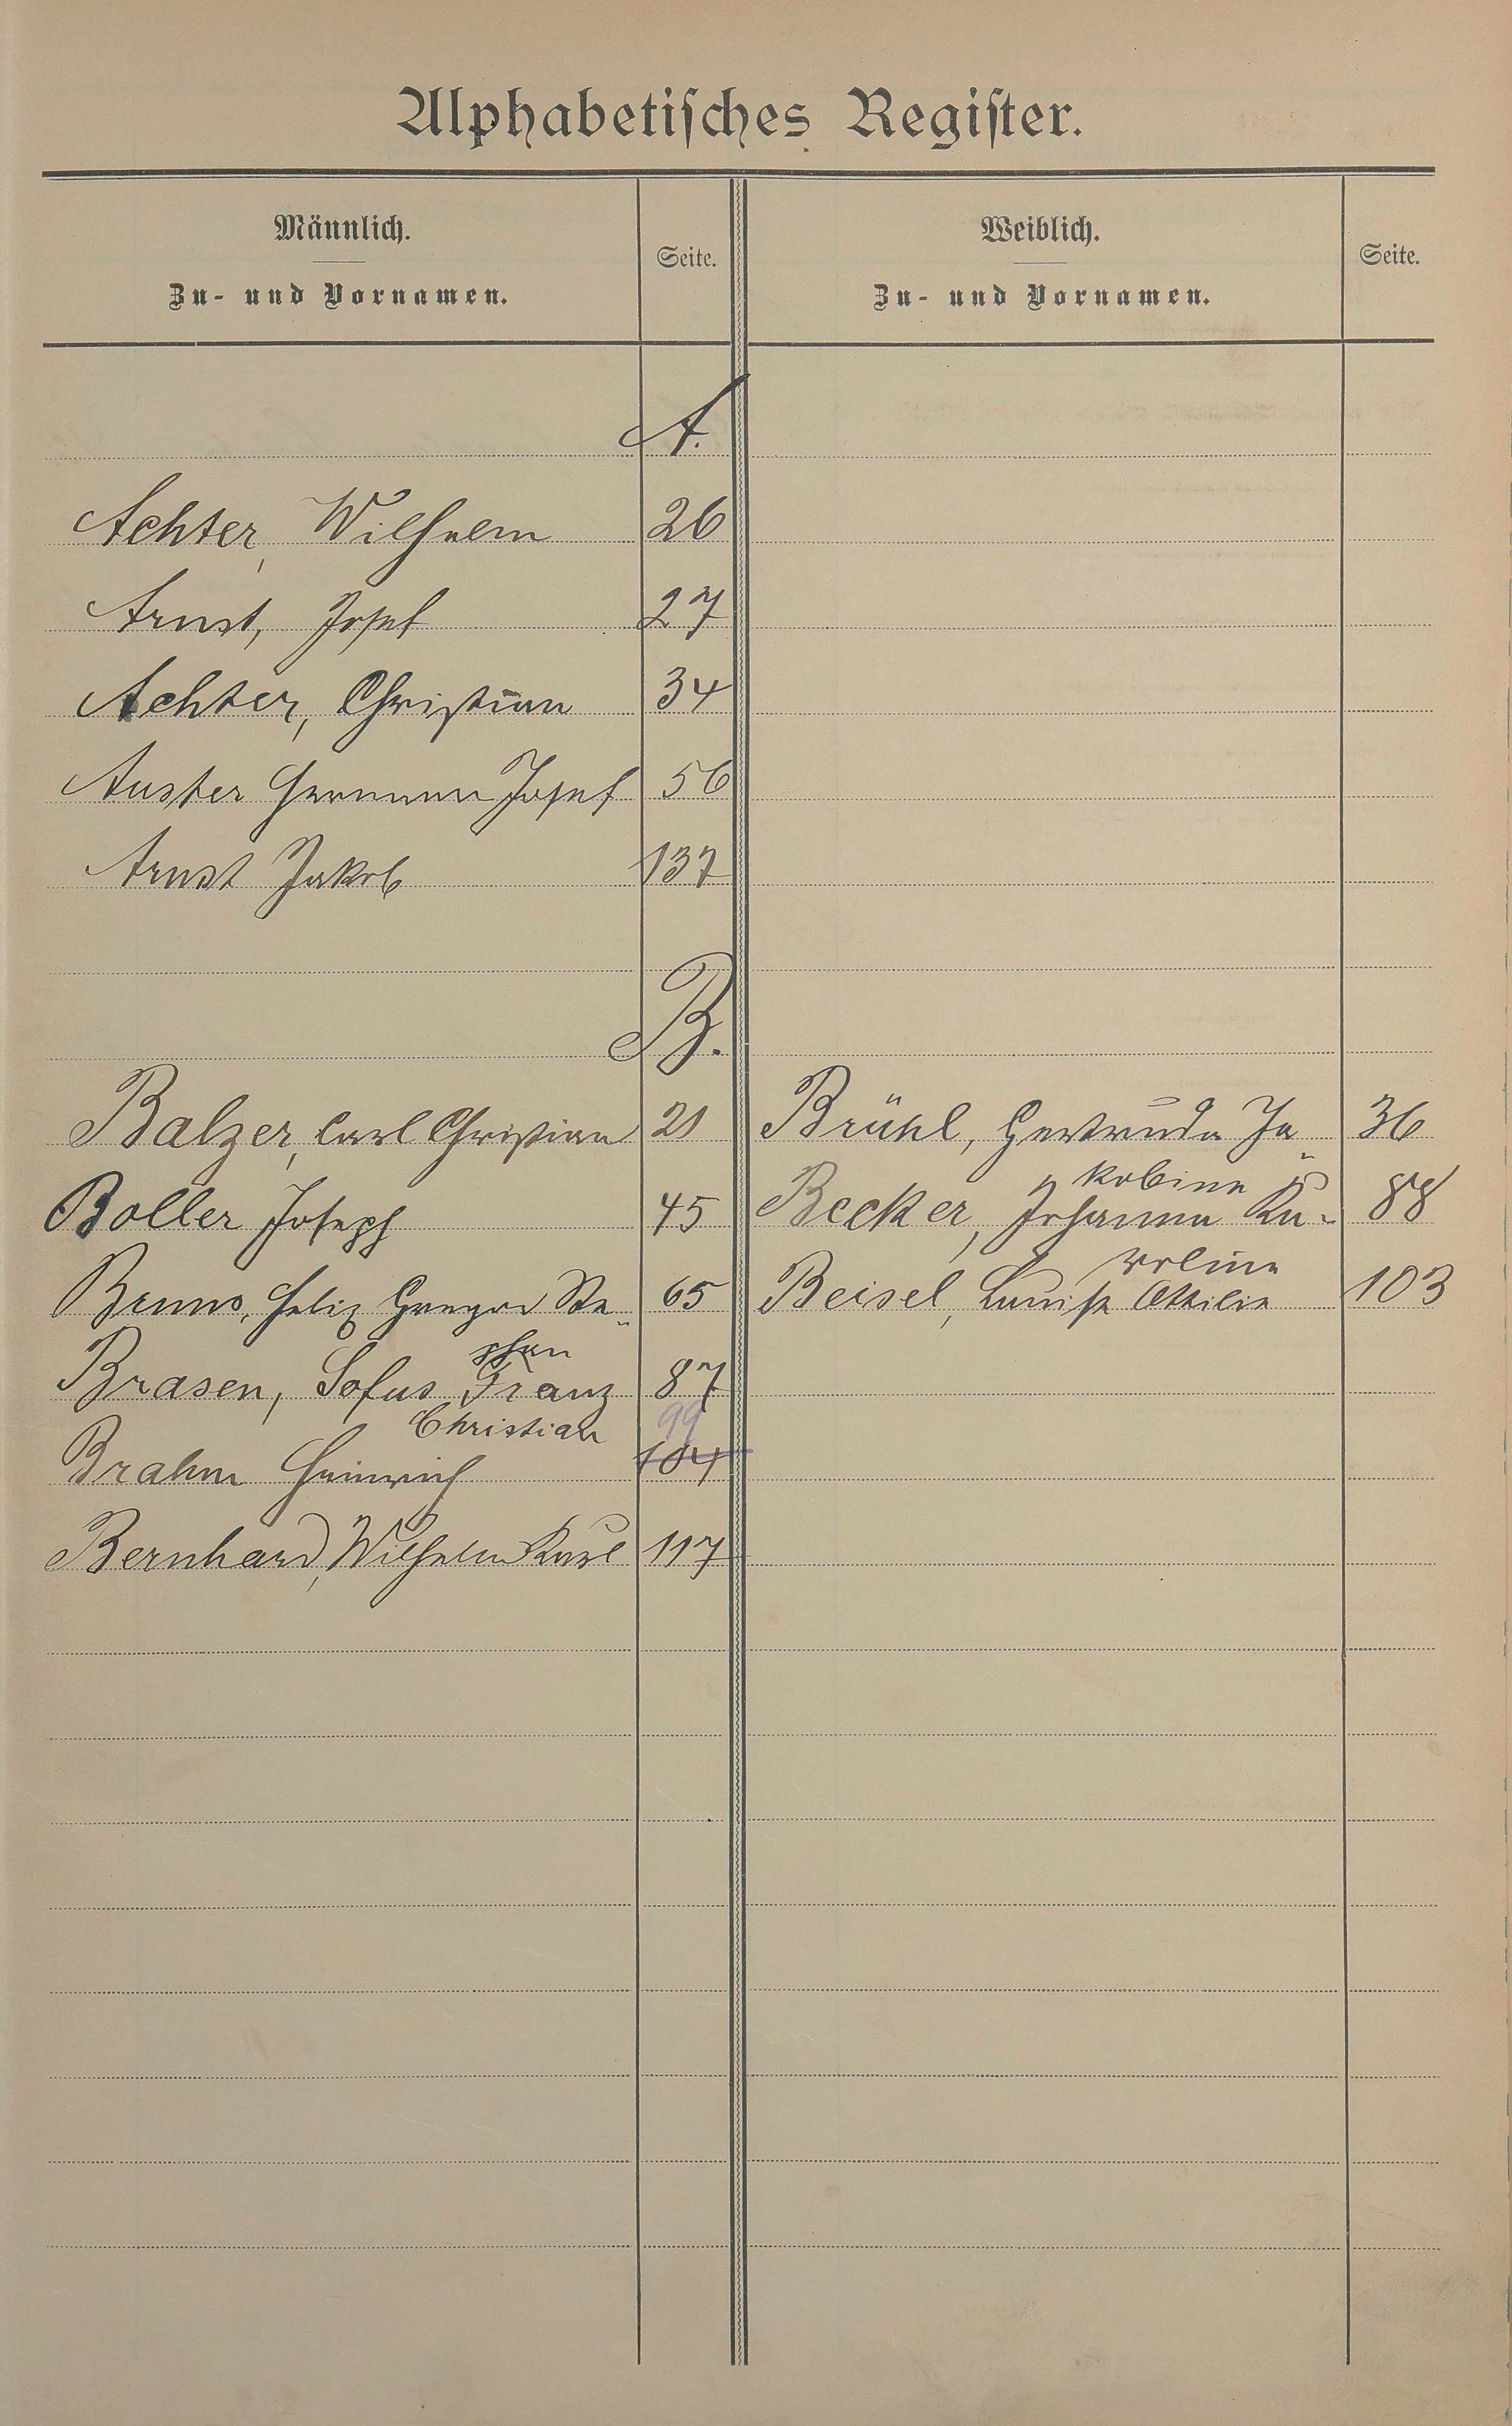 Alphabetisches Register.
Männlich.
Zu- und Vornamen.
Seite.
Weiblich.
Zu- und Vornamen.
Seite.
A.
Achter, Wilhelm 26
Arnst, Josef 27
Achter, Christian 34
Auster Hermann Josef 56
Arnst Jakob 137
B.
Balzer, Carl Christian 21 Brühl, Gertruda Ja- 36
kobina
Boller Joseph 45 Becker, Johanna Ka- 88
rolina
Bruno, Felix Gregor Ste- 65 Beisel, Luise Ottilie 103
phan
Brasen, Sofus Franz 87
Christian 99
Brahm Heinrich 104
Bernhard, Wilhelm Karl 117